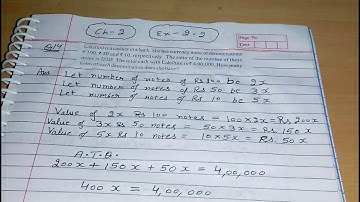 Ch-2 Ex-2.2
Page No.
Date
Q.14 Lakshmi is a cashier in a bank. She has currency notes of denominations
₹ 100, ₹ 50 and ₹ 10, respectively. The ratio of the number of these
notes is 2:3:5. The total cash with Lakshmi is ₹ 4,00,000. How many
notes of each denomination does she have?
Ans Let number of notes of Rs 100 be 2x
Let number of notes of Rs 50 be 3x
Let number of notes of Rs 10 be 5x
Value of 2x Rs 100 notes = 100×2x = Rs. 200x
Value of 3x Rs 50 notes = 50×3x = Rs 150x
Value of 5x Rs 10 notes = 10×5x = Rs. 50x
A.T.Q.
200x + 150x + 50x = 4,00,000
400x = 4,00,000